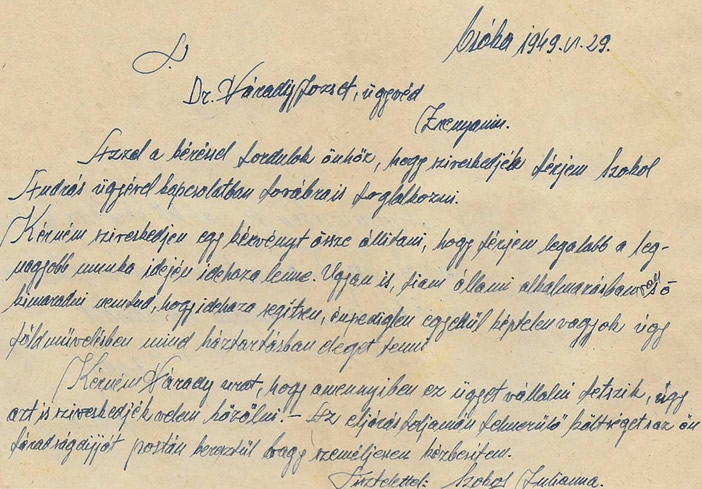 Csóka 1949. VI. 29.
T.
Dr. Várady József, ügyvéd
Zrenyanin.
Azzal a kéréssel fordulok önhöz, hogy sziveskedjék férjem Szokol
András ügyével kapcsolatban továbbra is foglalkozni.
Kérném sziveskedjen egy kérvényt össze állitani, hogy férjem legalabb a leg-
nagyobb munka idején idehaza lenne. Ugyan is, fiam állami alkalmazásban és ő
kimaradni nem tud, hogy idehaza segitsen, én pediglen egyedül képtelen vagyok úgy
földmüvelésben mind háztartásban eleget tenni
Kérném Várady urat, hogy amennyiben ez ügyet vállalni tetszik, úgy
azt is sziveskedjék velem közölni. – Az eljárás foljamán felmerülő költséget s az ön
fáradságdijját postán keresztül vagy személyesen kézbesitem.
Tisztelettel: Szokol Julianna.